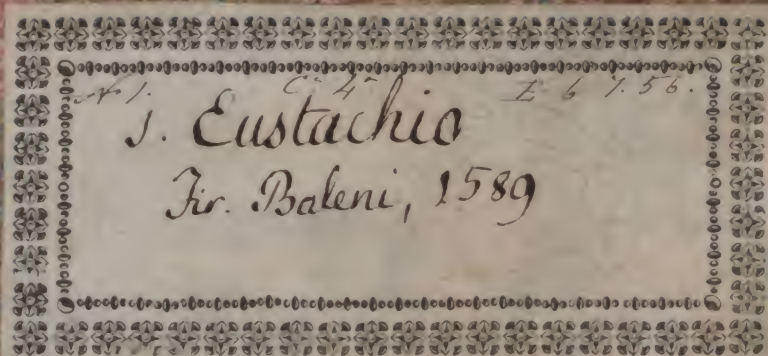 N 1. C 4 E 6 7. 56.
S. Eustachio
Fir. Baleni, 1589